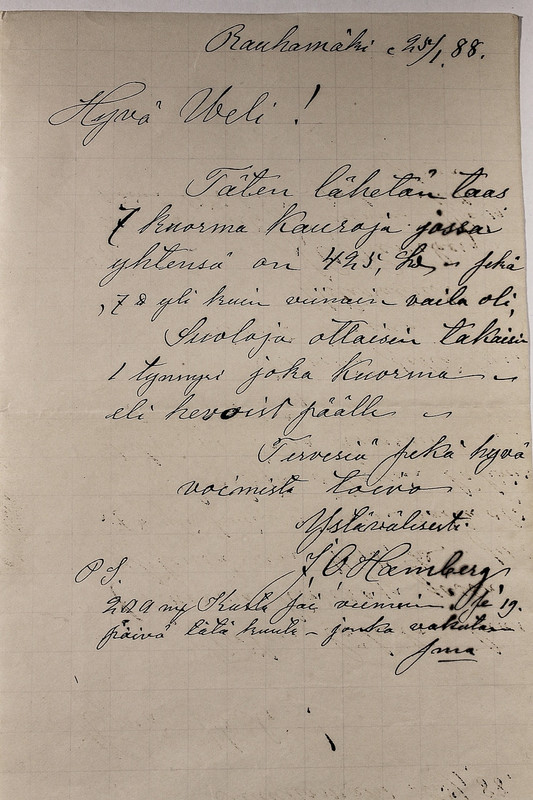 Rauhamäki 25/1.88.
Hyvä Weli!
Täten lähetän taas
7 kuorma kauroja jossa
yhtensä on 425, sekä
7 yli kuin viimein vaila oli,
Suoloja ottaisin takaisin
1 tynnyri joka kuorma
eli hevoist päälle
Tervesiä sekä hyvä
voimista toivo
Ystävälisesti
J. O. Hamberg
P S.
Kusta sai viimein 19.
päivä tätä kuuta - jonka vakuta